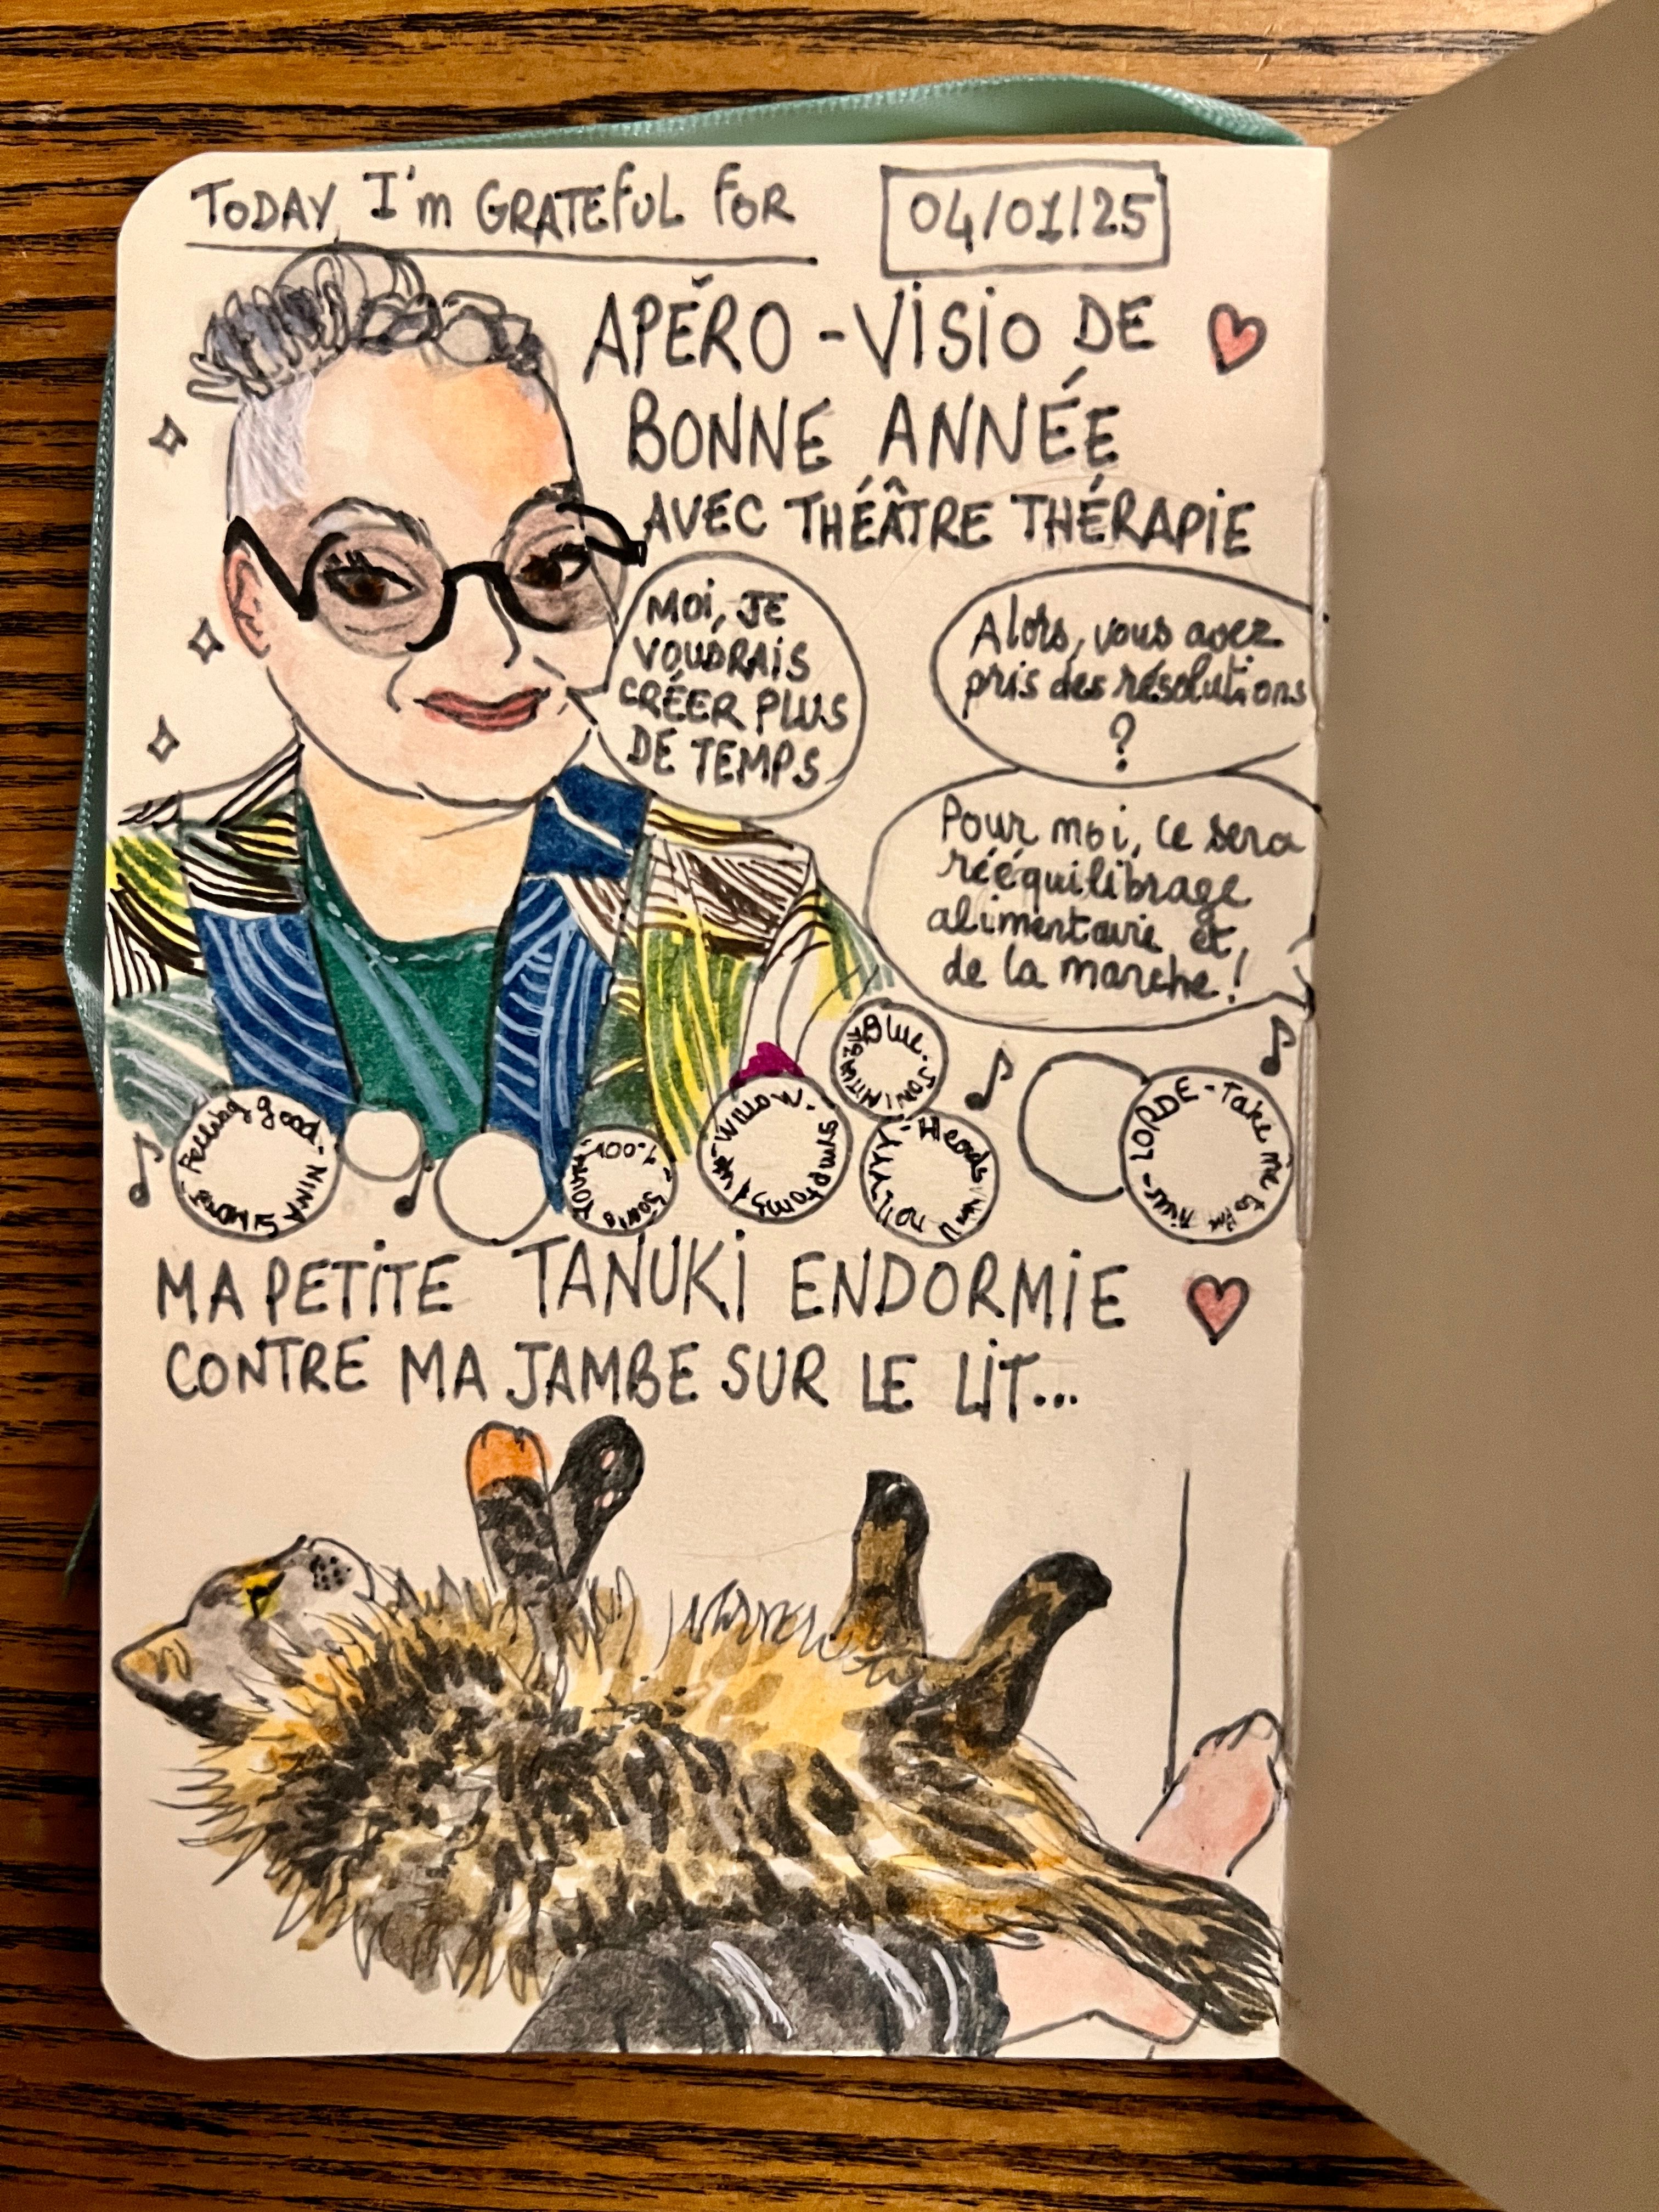 TODAY, I'm GRATEFUL FOR
04/01/25
APÉRO-VISIO DE
BONNE ANNÉE
AVEC THÉÂTRE THÉRAPIE
MOI, JE
VOUDRAIS
CRÉER PLUS
DE TEMPS
Alors, vous avez
pris des résolutions
?
Pour moi, ce sera
rééquilibrage
alimentaire et
de la marche!
Feeling good - NINA SIMONE
YOUR
WILLOW - symptom
Blue - JONI MITCHELL
Heads
LORDE - Take me to the river
MA PETITE TANUKI ENDORMIE
CONTRE MA JAMBE SUR LE LIT...